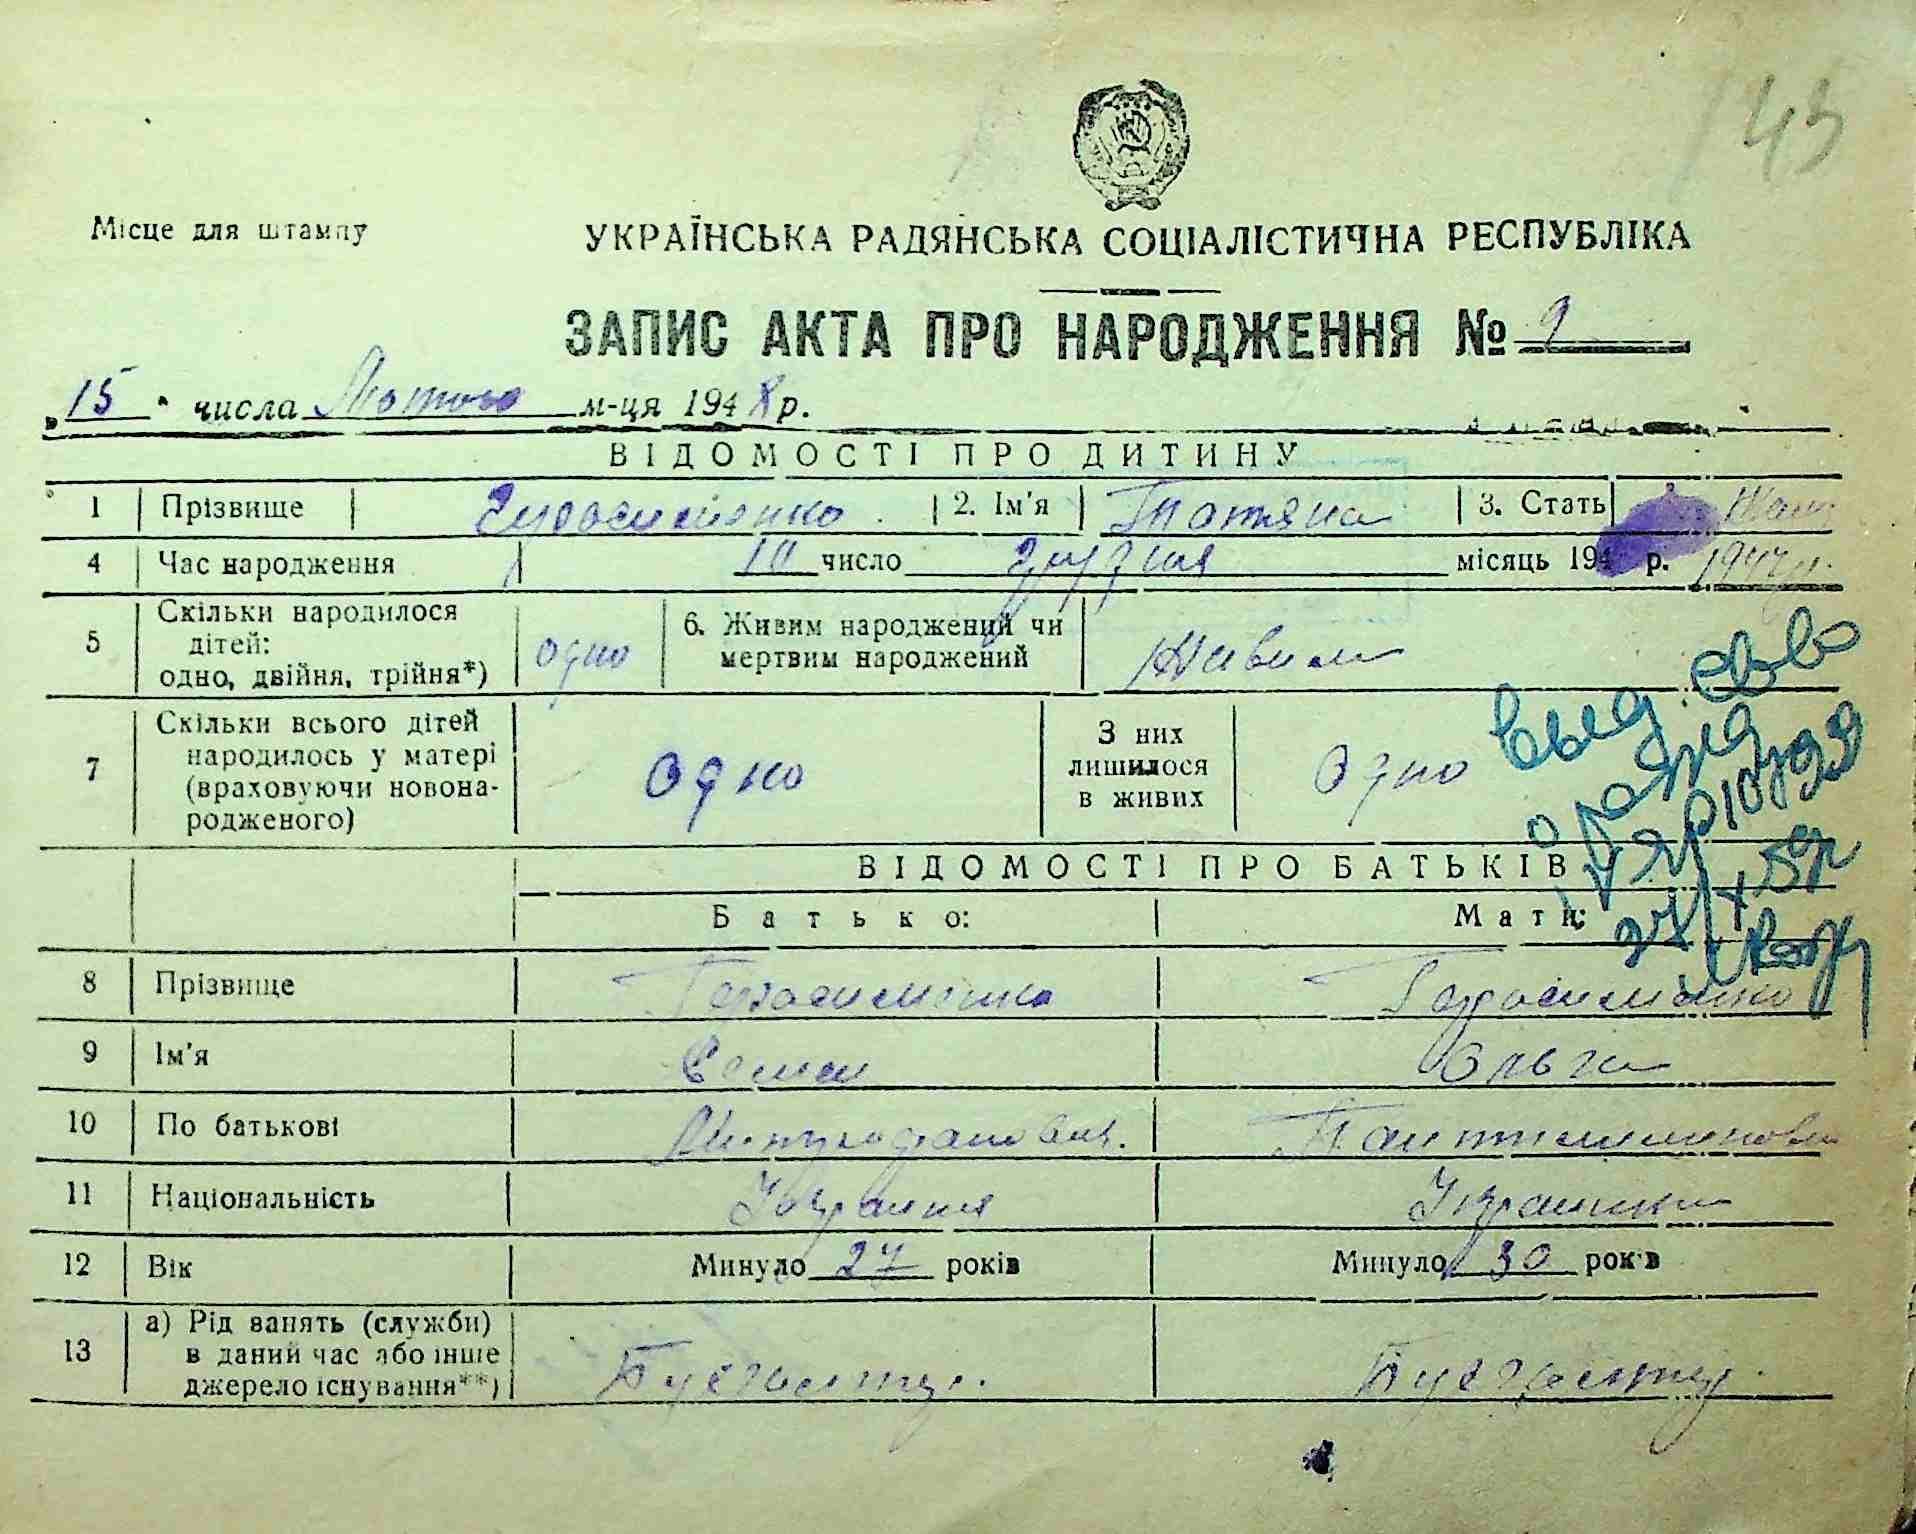 145
Місце для штампу
УКРАЇНСЬКА РАДЯНСЬКА СОЦІАЛІСТИЧНА РЕСПУБЛІКА
ЗАПИС АКТА ПРО НАРОДЖЕННЯ № 2
„15" числа Лютого м-ця 1948 р.
ВІДОМОСТІ ПРО ДИТИНУ
1 Прізвище Герасименко 2. Ім'я Татяна 3. Стать Жін.
4 Час народження 10 число грудня місяць 194 р. 1947 р.
5 Скільки народилося дітей: одно, двійня, трійня*) одно 6. Живим народжений чи мертвим народжений Живим
7 Скільки всього дітей народилось у матері (враховуючи новонародженого) Одно З них лишилося в живих Одно
выд. св-во
о рожд.
ВІДОМОСТІ ПРО БАТЬКІВ
Батько: Мати:
8 Прізвище Герасименко Герасименко
9 Ім'я Семен Ольга
10 По батькові Митрофанович. Пантилимоновна
11 Національність Українец Українка
12 Вік Минуло 27 років Минуло 30 років
13 а) Рід занять (служби) в даний час або інше джерело існування**)